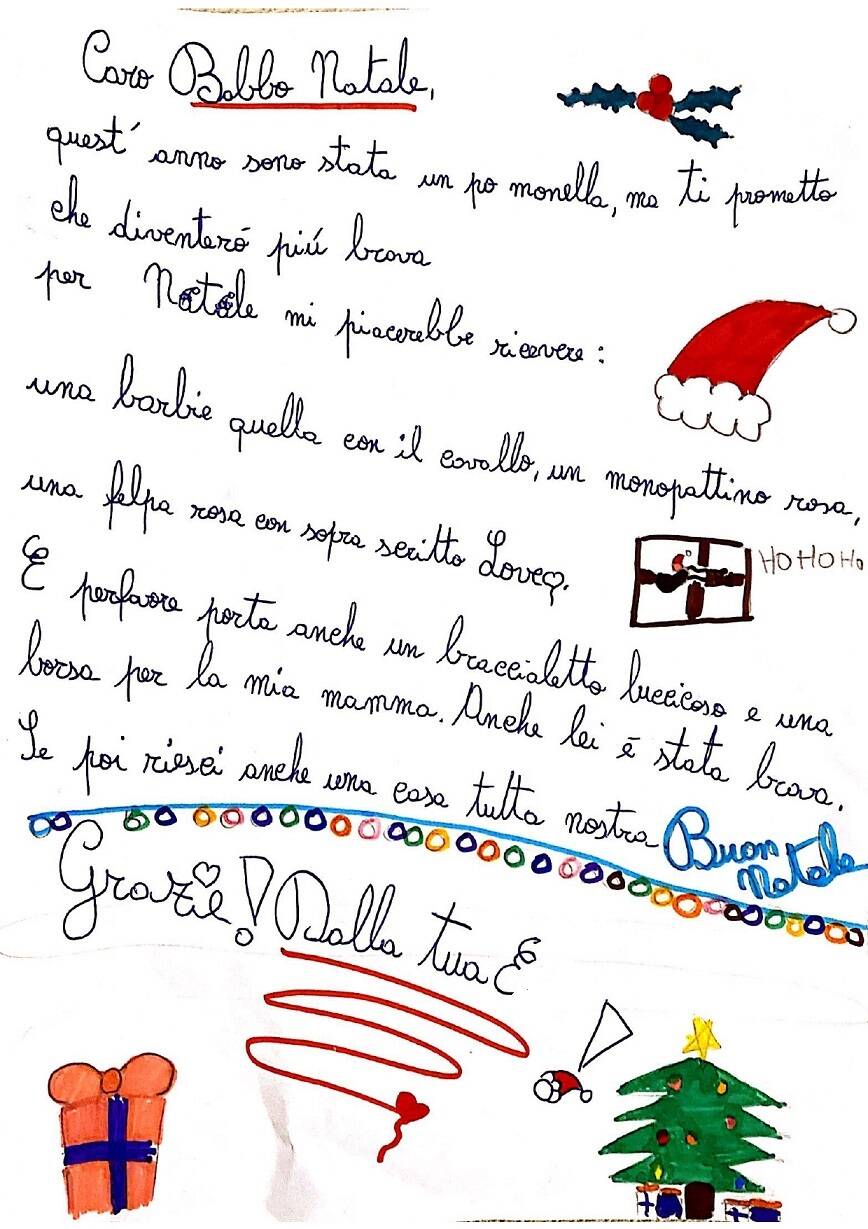 Caro Babbo Natale,
quest' anno sono stata un po monella, ma ti prometto
che diventeró piú brava
per Natale mi piacerebbe ricevere :
una barbie quella con il cavallo, un monopattino rosa,
una felpa rosa con sopra scritto Love.
HO HO HO
E perfavore porta anche un braccialetto luccicoso e una
borsa per la mia mamma. Anche lei é stata brava.
Se poi riesci anche una casa tutta nostra
Buon
Natale
Grazie! Dalla tua E